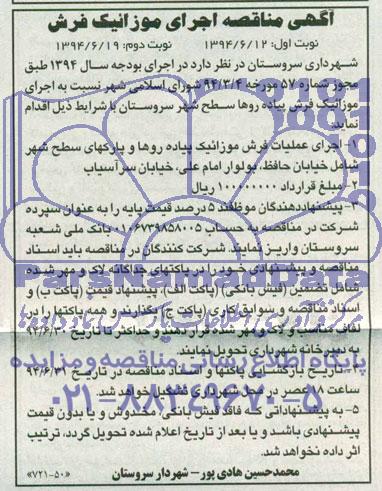 آگهی مناقصه اجرای موزائیک فرش
نوبت اول: ۱۳۹۴/۶/۱۲ نوبت دوم: ۱۳۹۴/۶/۱۹
شهرداری سروستان در نظر دارد در اجرای بودجه سال ۱۳۹۴ طبق
مجوز شماره ۵۷ مورخه ۹۴/۳/۴ شورای اسلامی شهر نسبت به اجرای
موزائیک فرش پیاده روها سطح شهر سروستان با شرایط ذیل اقدام
نماید.
۱- اجرای عملیات فرش موزائیک پیاده روها و پارکهای سطح شهر
شامل خیابان حافظ، بولوار امام علی، خیابان سرآسیاب
۲- مبلغ قرارداد ۱۰۰۰۰۰۰۰۰۰ ریال
۳- پیشنهاددهندگان موظفند ۵ درصد قیمت پایه را به عنوان سپرده
شرکت در مناقصه به حساب ۰۱۰۶۷۳۹۸۵۸۰۰۵ بانک ملی شعبه
سروستان واریز نمایند. شرکت کنندگان در مناقصه باید اسناد
مناقصه و پیشنهادی خود را در پاکتهای جداگانه لاک و مهر شده
شامل تضمین (فیش بانکی)، (پاکت الف)، پیشنهاد قیمت (پاکت ب) و
اسناد مناقصه و سوابق کاری (پاکت ج) بگذارند و همه پاکتها را در
لفاف مناسب و لاک و مهر شده قرار دهند و حداکثر تا تاریخ ۹۴/۶/۳۰
به دبیرخانه شهرداری تحویل نمایند.
پایگاه اطلاع رسانی مناقصه و مزایده
۴- تاریخ بازگشایی پاکتها و اسناد مناقصه در تاریخ ۹۴/۶/۳۱
ساعت ۱۸ عصر در محل شهرداری تشکیل خواهد شد.
۰۲۱-۸۸۳۴۹۶۷۰-۵
۵- به پیشنهاداتی که فاقد فیش بانکی، مخدوش و یا بدون قیمت
پیشنهادی باشد و یا بعد از تاریخ اعلام شده تحویل گردد، ترتیب
اثر داده نخواهد شد.
محمدحسین هادی پور- شهردار سروستان
«۷۲۱-۵۰»